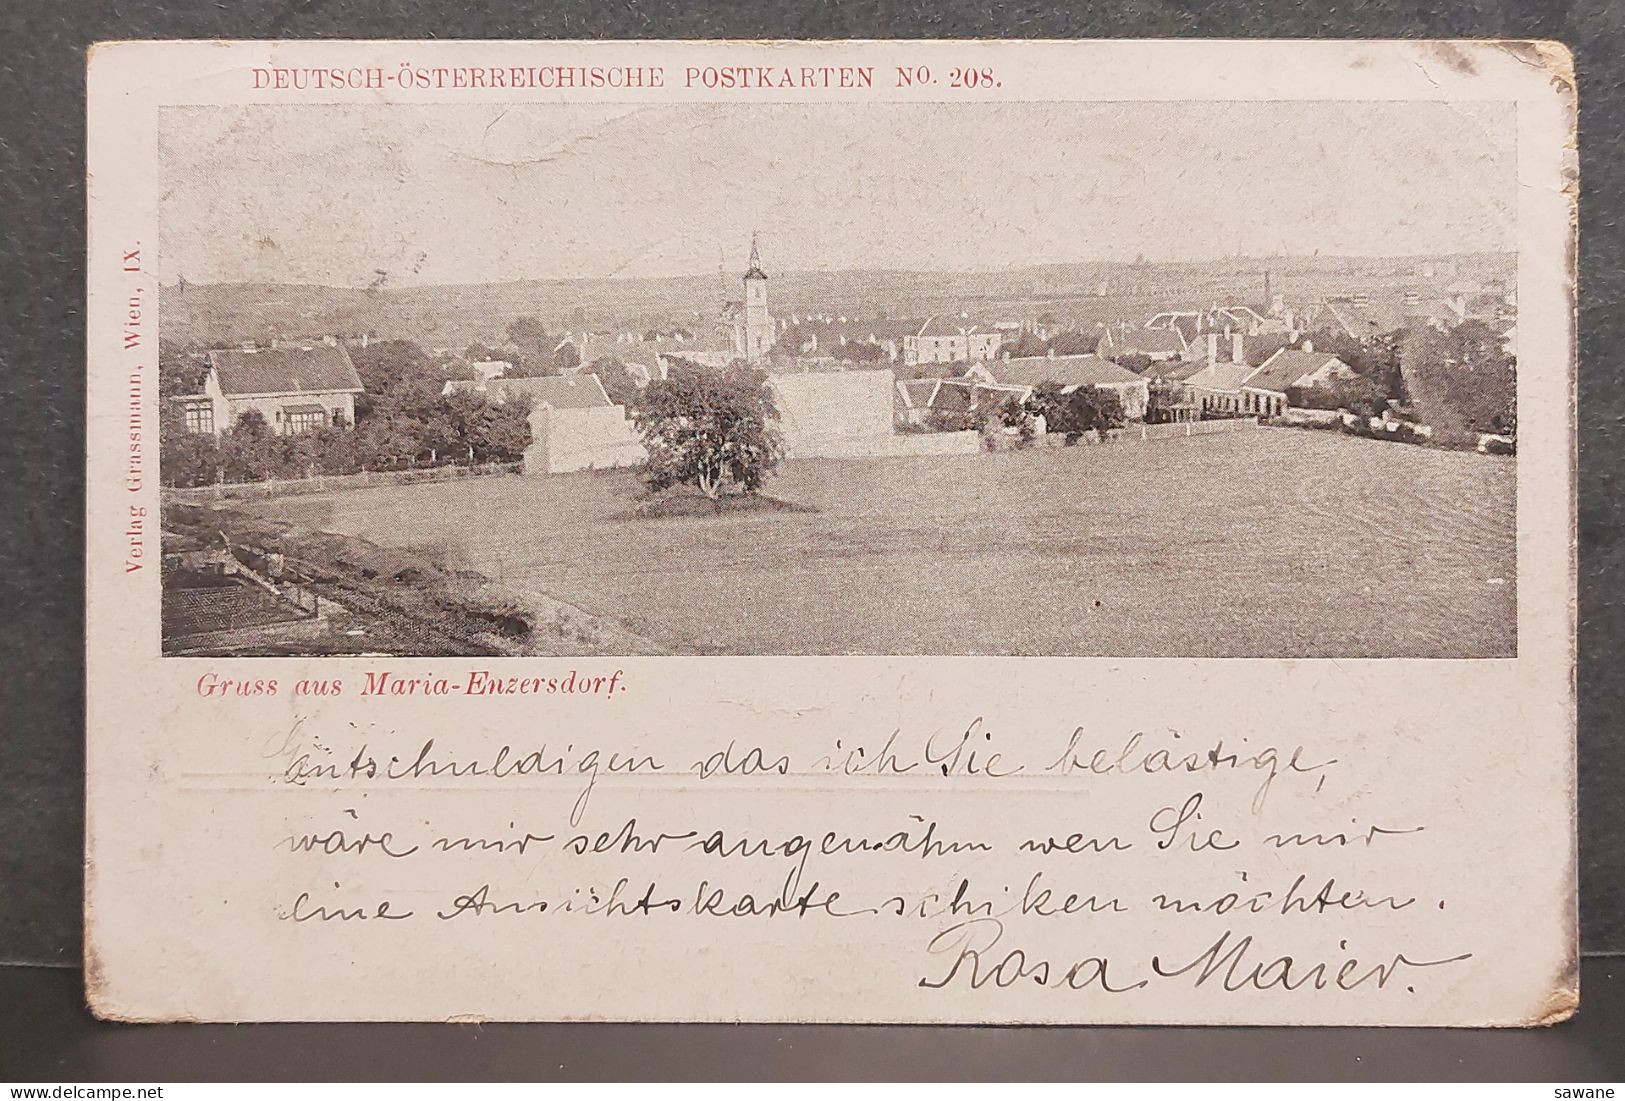 DEUTSCH-ÖSTERREICHISCHE POSTKARTEN NO. 208.
Verlag Grassmann, Wien, IX.
Gruss aus Maria-Enzersdorf.
Entschuldigen das ich Sie belästige,
wäre mir sehr angenähm wen Sie mir
eine Ansichtskarte schiken möchten.
Rosa Maier.
sawane